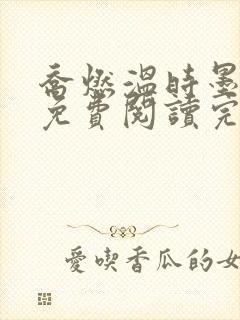 喬燃溫時墨
免費閱讀完
愛喫香瓜的女